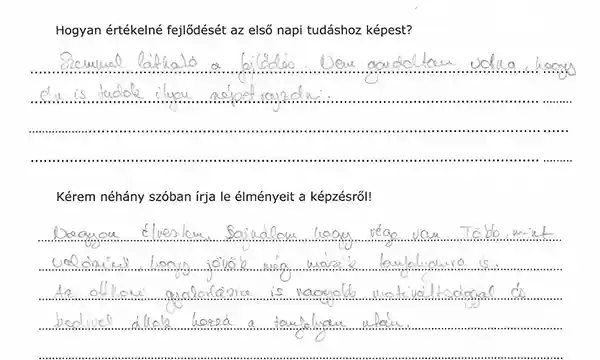 Hogyan értékelné fejlődését az első napi tudáshoz képest?
Szemmel látható a fejlődés. Nem gondoltam volna, hogy
én is tudok ilyen népet rajzolni.
Kérem néhány szóban írja le élményeit a képzésről!
Nagyon élveztem. Sajnálom, hogy vége van. Több, mint
valószínű, hogy jövök még másik tanfolyamra is.
Az otthoni gyakorlásra is nagyobb motiváltsággal és
kedvvel állok hozzá a tanfolyam után.